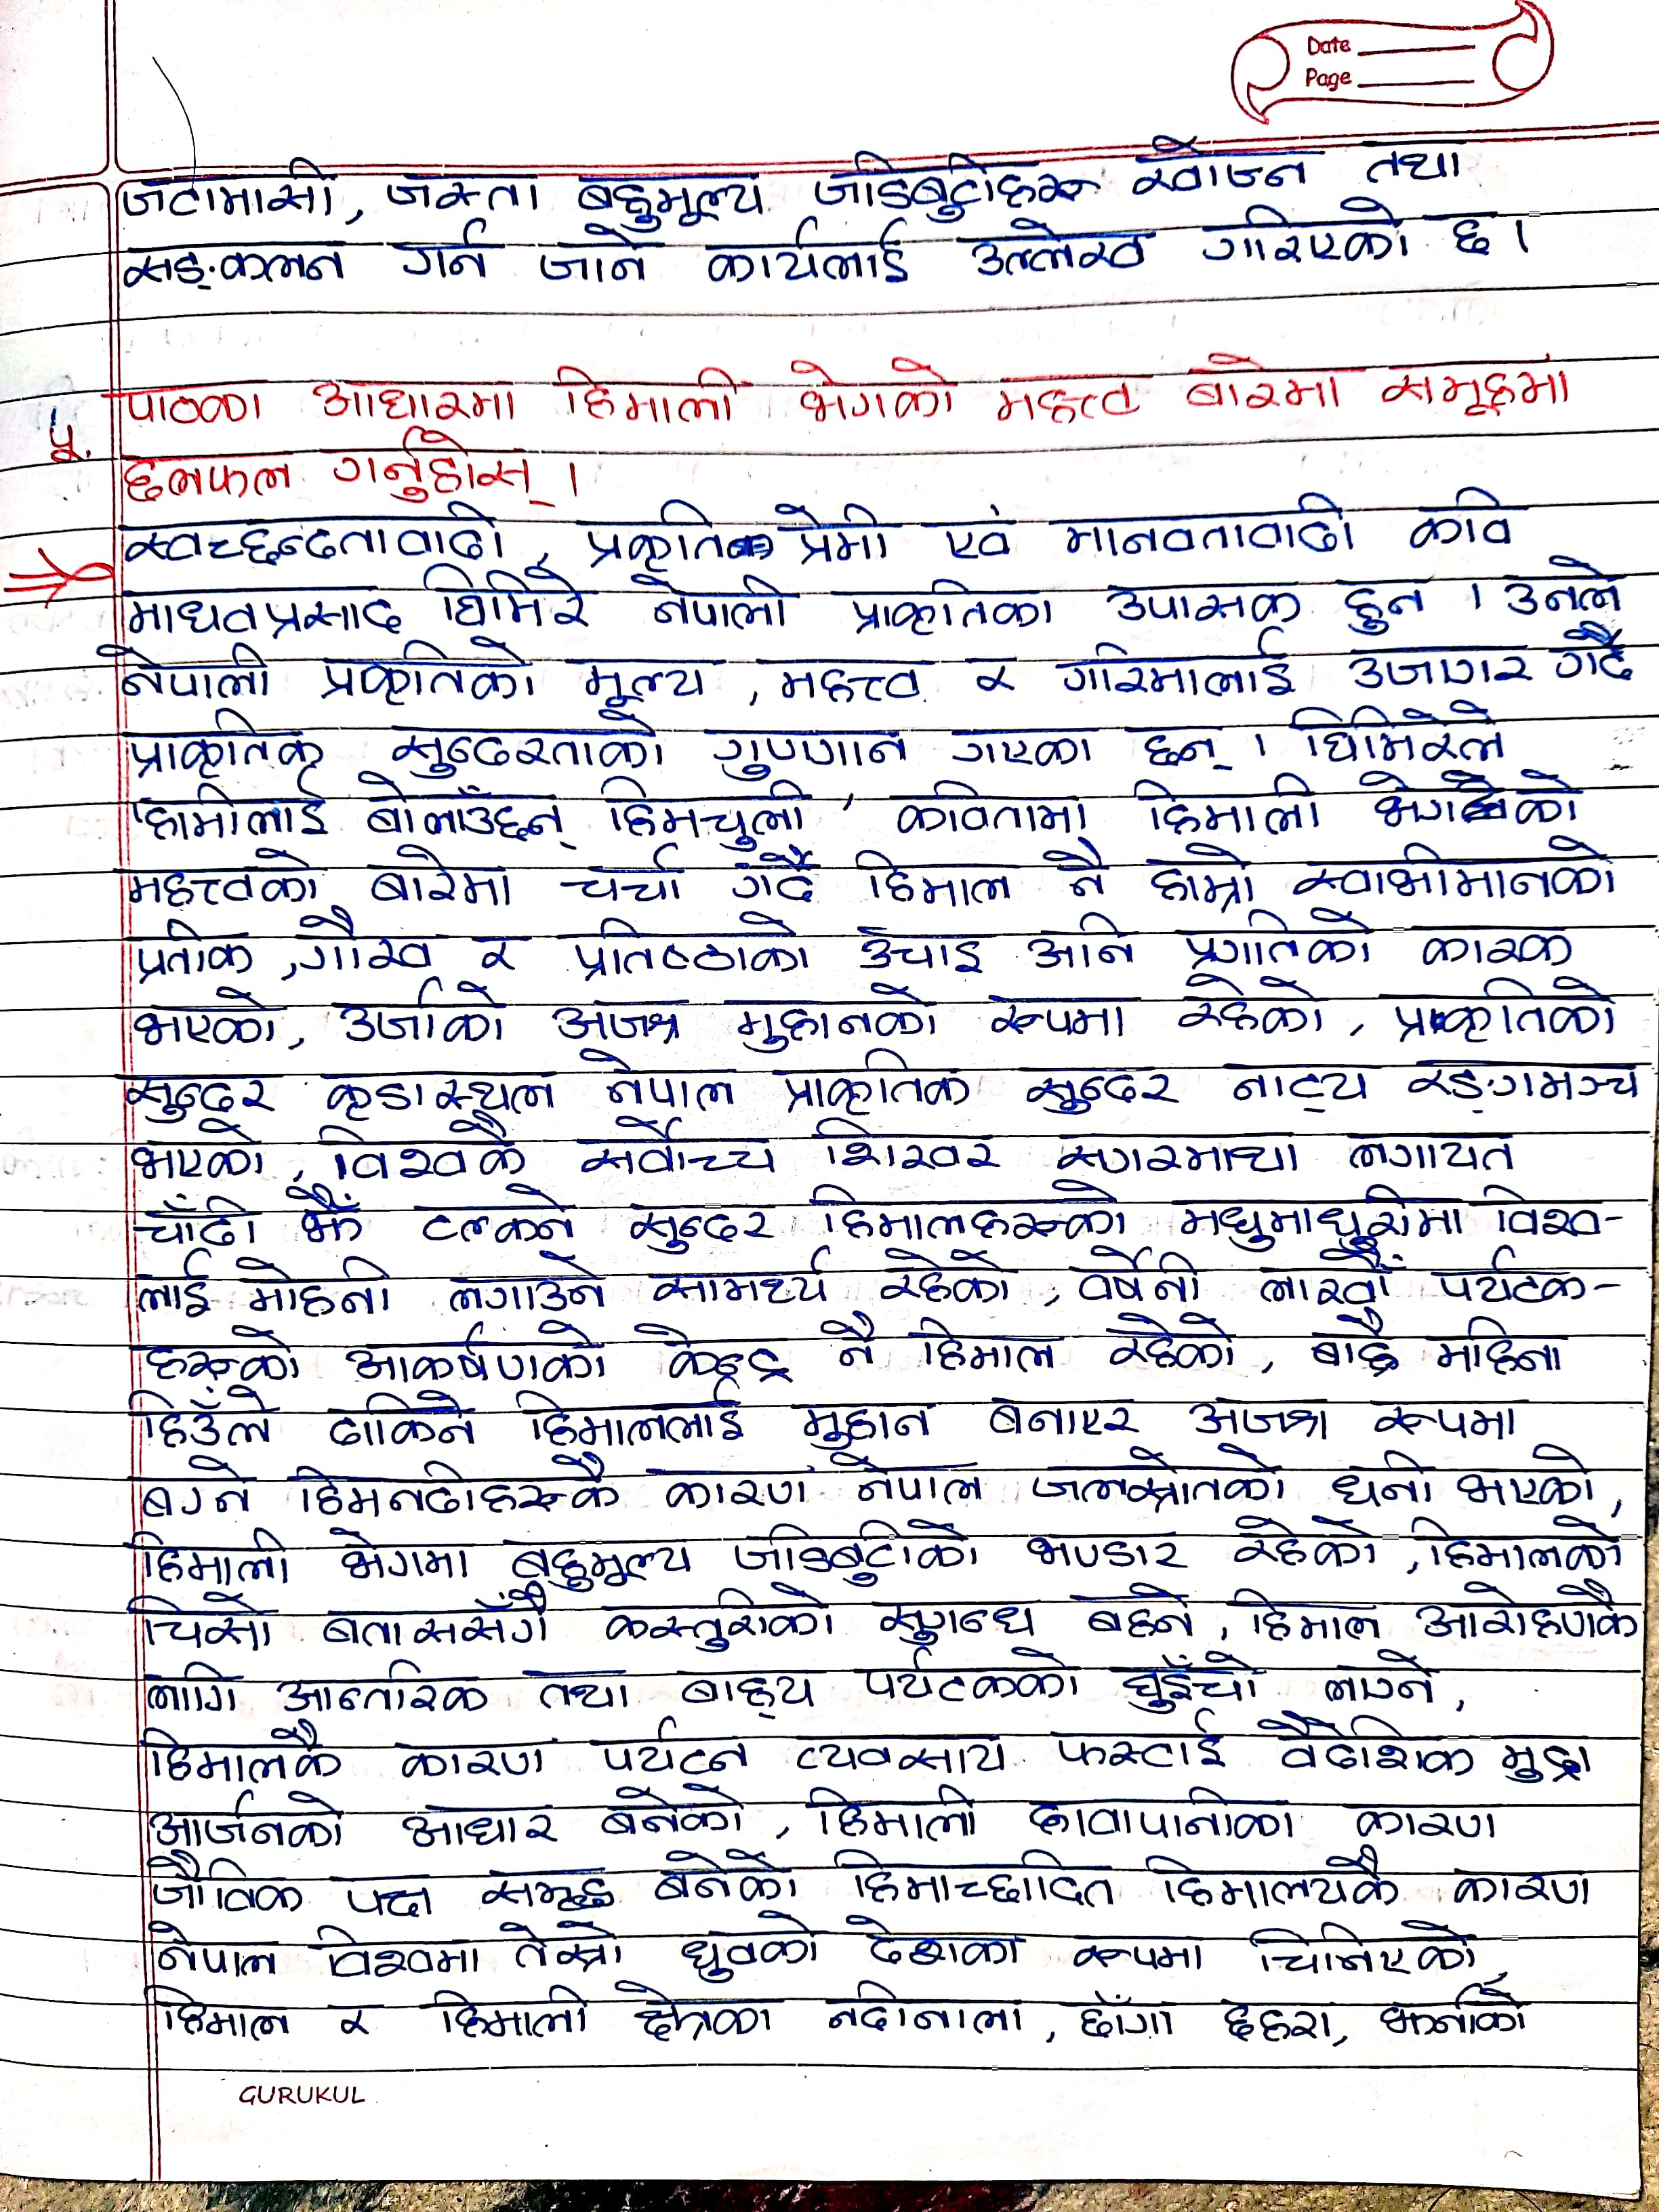 Date
Page
जटामासी, जस्ता बहुमूल्य जडिबुटीहरू खोज्न तथा
सङ्कलन गर्न जाने कार्यलाई उल्लेख गरिएको छ ।
५. पाठका आधारमा हिमाली भेगको महत्त्व बारेमा समूहमा
छलफल गर्नुहोस् ।
⇒ स्वच्छन्दतावादी, प्रकृति प्रेमी एवं मानवतावादी कवि
माधवप्रसाद घिमिरे नेपाली प्राकृतिका उपासक हुन । उनले
नेपाली प्रकृतिको मूल्य, महत्त्व र गरिमालाई उजागर गर्दै
प्राकृतिक सुन्दरताको गुणगान गएका छन् । घिमिरेले
'हामीलाई बोलाउँछन् हिमचुली' कवितामा हिमाली भेगको
महत्त्वको बारेमा चर्चा गर्दै हिमाल नै हाम्रो स्वाभीमानको
प्रतीक, गौरव र प्रतिष्ठाको उँचाइ अनि प्रगतिको कारक
भएको, उर्जाको अजश्र मुहानको रूपमा रहेको, प्राकृतिको
सुन्दर कृडास्थल नेपाल प्राकृतिक सुन्दर नाट्य रङ्गमञ्च
भएको, विश्वकै सर्वोच्च शिखर सगरमाथा लगायत
चाँदी झैं टल्कने सुन्दर हिमालहरूको मधुमाधुरीमा विश्व-
लाई मोहनी लगाउने सामर्थ्य रहेको, वर्षेनी लाखौं पर्यटक-
हरूको आकर्षणको केन्द्र नै हिमाल रहेको, बाह्रै महिना
हिउँले ढाकिने हिमाललाई मुहान बनाएर अजश्र रूपमा
बग्ने हिमनदीहरूकै कारण नेपाल जलस्रोतको धनी भएको,
हिमाली भेगमा बहुमूल्य जडिबुटीको भण्डार रहेको, हिमालको
चिसो बताससँगै कस्तुरीको सुगन्ध बहने, हिमाल आरोहणकै
लागि आन्तरिक तथा बाह्य पर्यटकको घुइँचो लग्ने,
हिमालकै कारण पर्यटन व्यवसाय फस्टाई वैदेशिक मुद्रा
आर्जनको आधार बनेको, हिमाली हावापानीका कारण
जैविक पक्ष समृद्ध बनेको हिमाच्छादित हिमालयकै कारण
नेपाल विश्वमा तेस्रो ध्रुवको देशका रूपमा चिनिएको
हिमाल र हिमाली क्षेत्रका नदीनाला, छाँगा छहरा, झर्नाको
GURUKUL